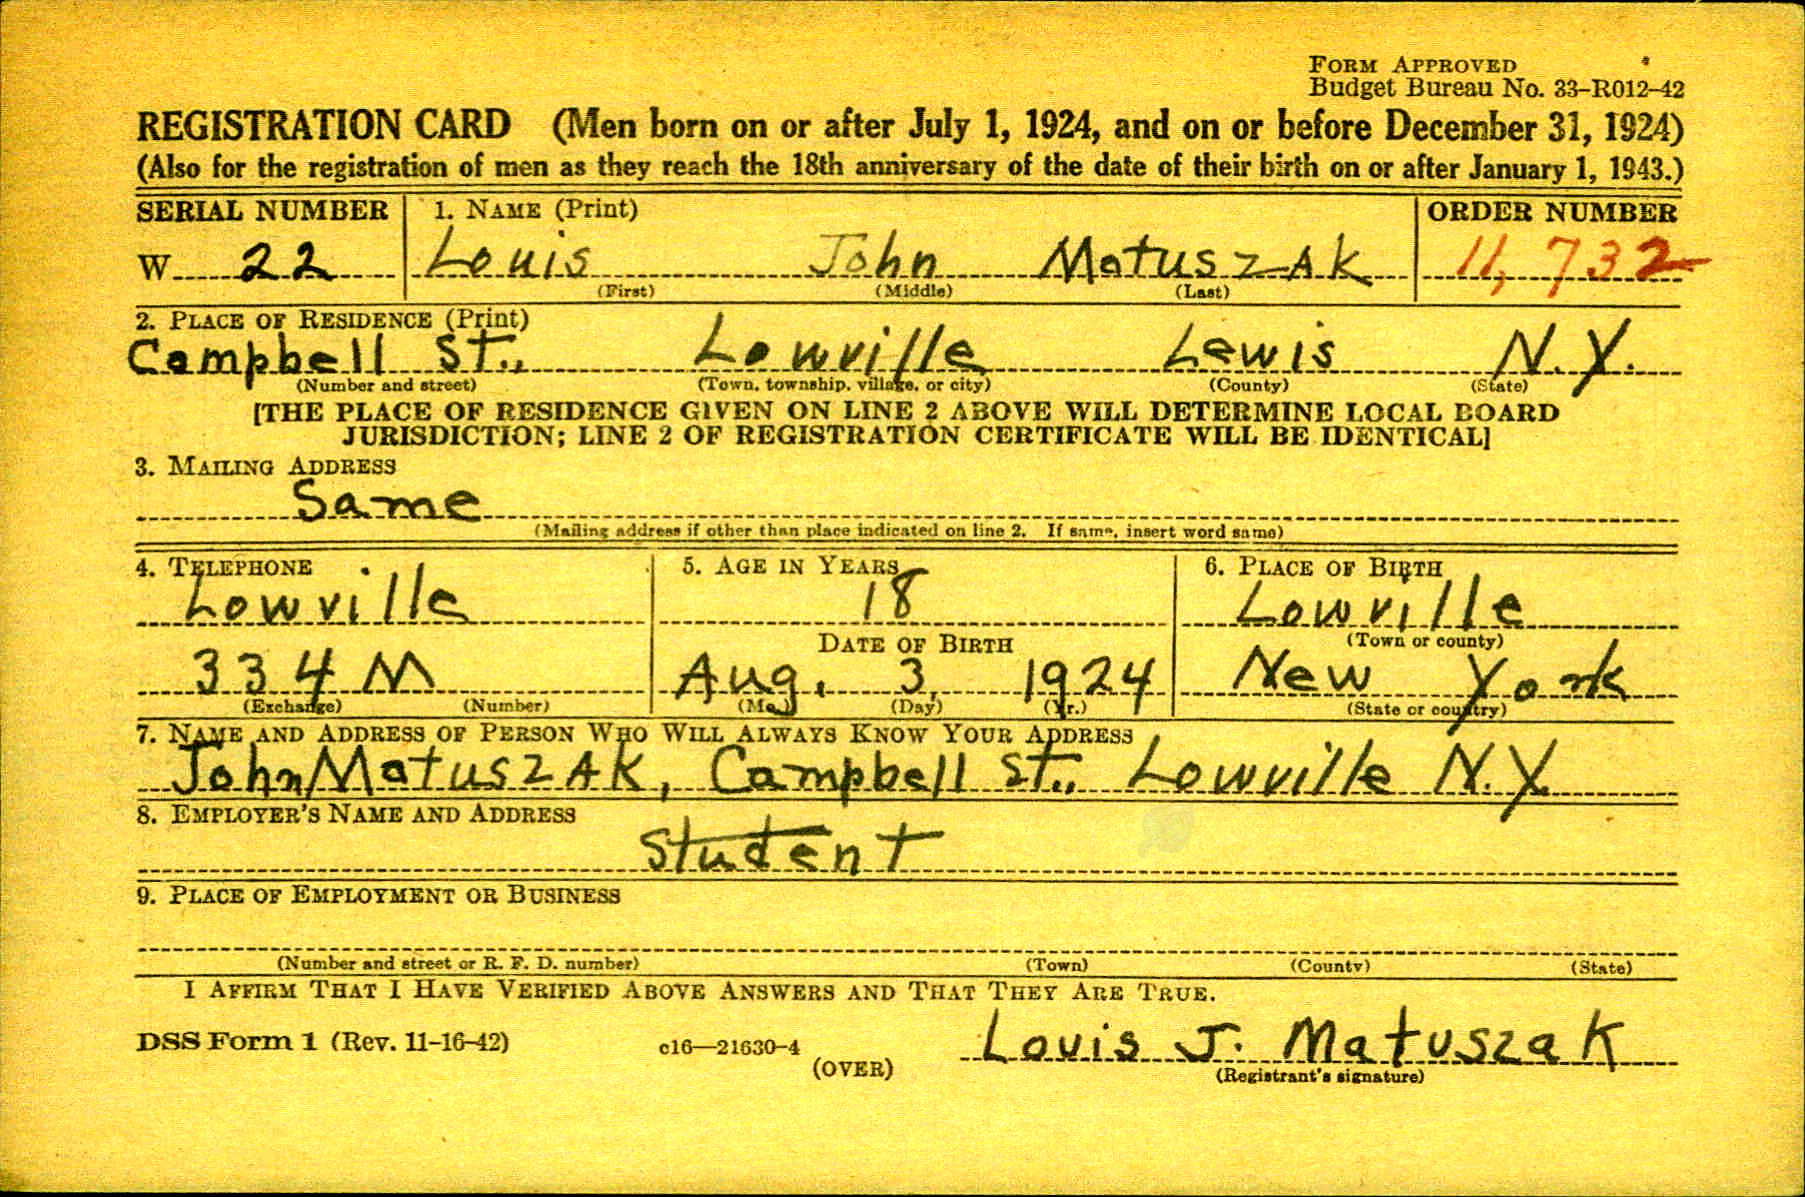 FORM APPROVED
Budget Bureau No. 33-R012-42
REGISTRATION CARD (Men born on or after July 1, 1924, and on or before December 31, 1924)
(Also for the registration of men as they reach the 18th anniversary of the date of their birth on or after January 1, 1943.)
SERIAL NUMBER 1. NAME (Print) ORDER NUMBER
W 22 Louis John Matuszak 11,732
(First) (Middle) (Last)
2. PLACE OF RESIDENCE (Print)
Campbell St., Lowville Lewis N.Y.
(Number and street) (Town, township, village, or city) (County) (State)
[THE PLACE OF RESIDENCE GIVEN ON LINE 2 ABOVE WILL DETERMINE LOCAL BOARD
JURISDICTION; LINE 2 OF REGISTRATION CERTIFICATE WILL BE IDENTICAL]
3. MAILING ADDRESS
Same
(Mailing address if other than place indicated on line 2. If same, insert word same)
4. TELEPHONE 5. AGE IN YEARS 6. PLACE OF BIRTH
Lowville 18 Lowville
DATE OF BIRTH (Town or county)
334M Aug. 3, 1924 New York
(Exchange) (Number) (Mo.) (Day) (Yr.) (State or country)
7. NAME AND ADDRESS OF PERSON WHO WILL ALWAYS KNOW YOUR ADDRESS
John Matuszak, Campbell St., Lowville N.Y.
8. EMPLOYER'S NAME AND ADDRESS
Student
9. PLACE OF EMPLOYMENT OR BUSINESS
(Number and street or R. F. D. number) (Town) (County) (State)
I AFFIRM THAT I HAVE VERIFIED ABOVE ANSWERS AND THAT THEY ARE TRUE.
DSS Form 1 (Rev. 11-16-42) c16—21630-4 (OVER) Louis J. Matuszak
(Registrant's signature)